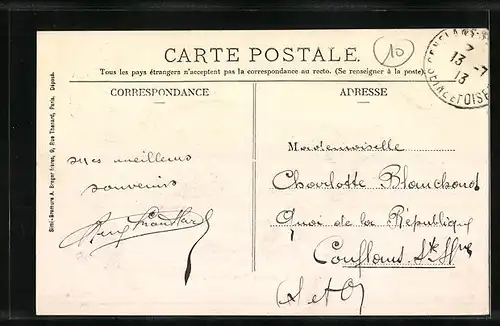 CARTE POSTALE.
10
Tous les pays étrangers n'acceptent pas la correspondance au recto. (Se renseigner à la poste).
CORRESPONDANCE
ADRESSE
CONFLANS-S
13 -7
13
SEINE ET OISE
Simi-Bromure A. Breger frères, 9, Rue Thénard, Paris. Déposé.
mes meilleurs
souvenirs
Mademoiselle
Charlotte Blanchard
Quai de la République
Conflans. Ste Hne
(S et O)